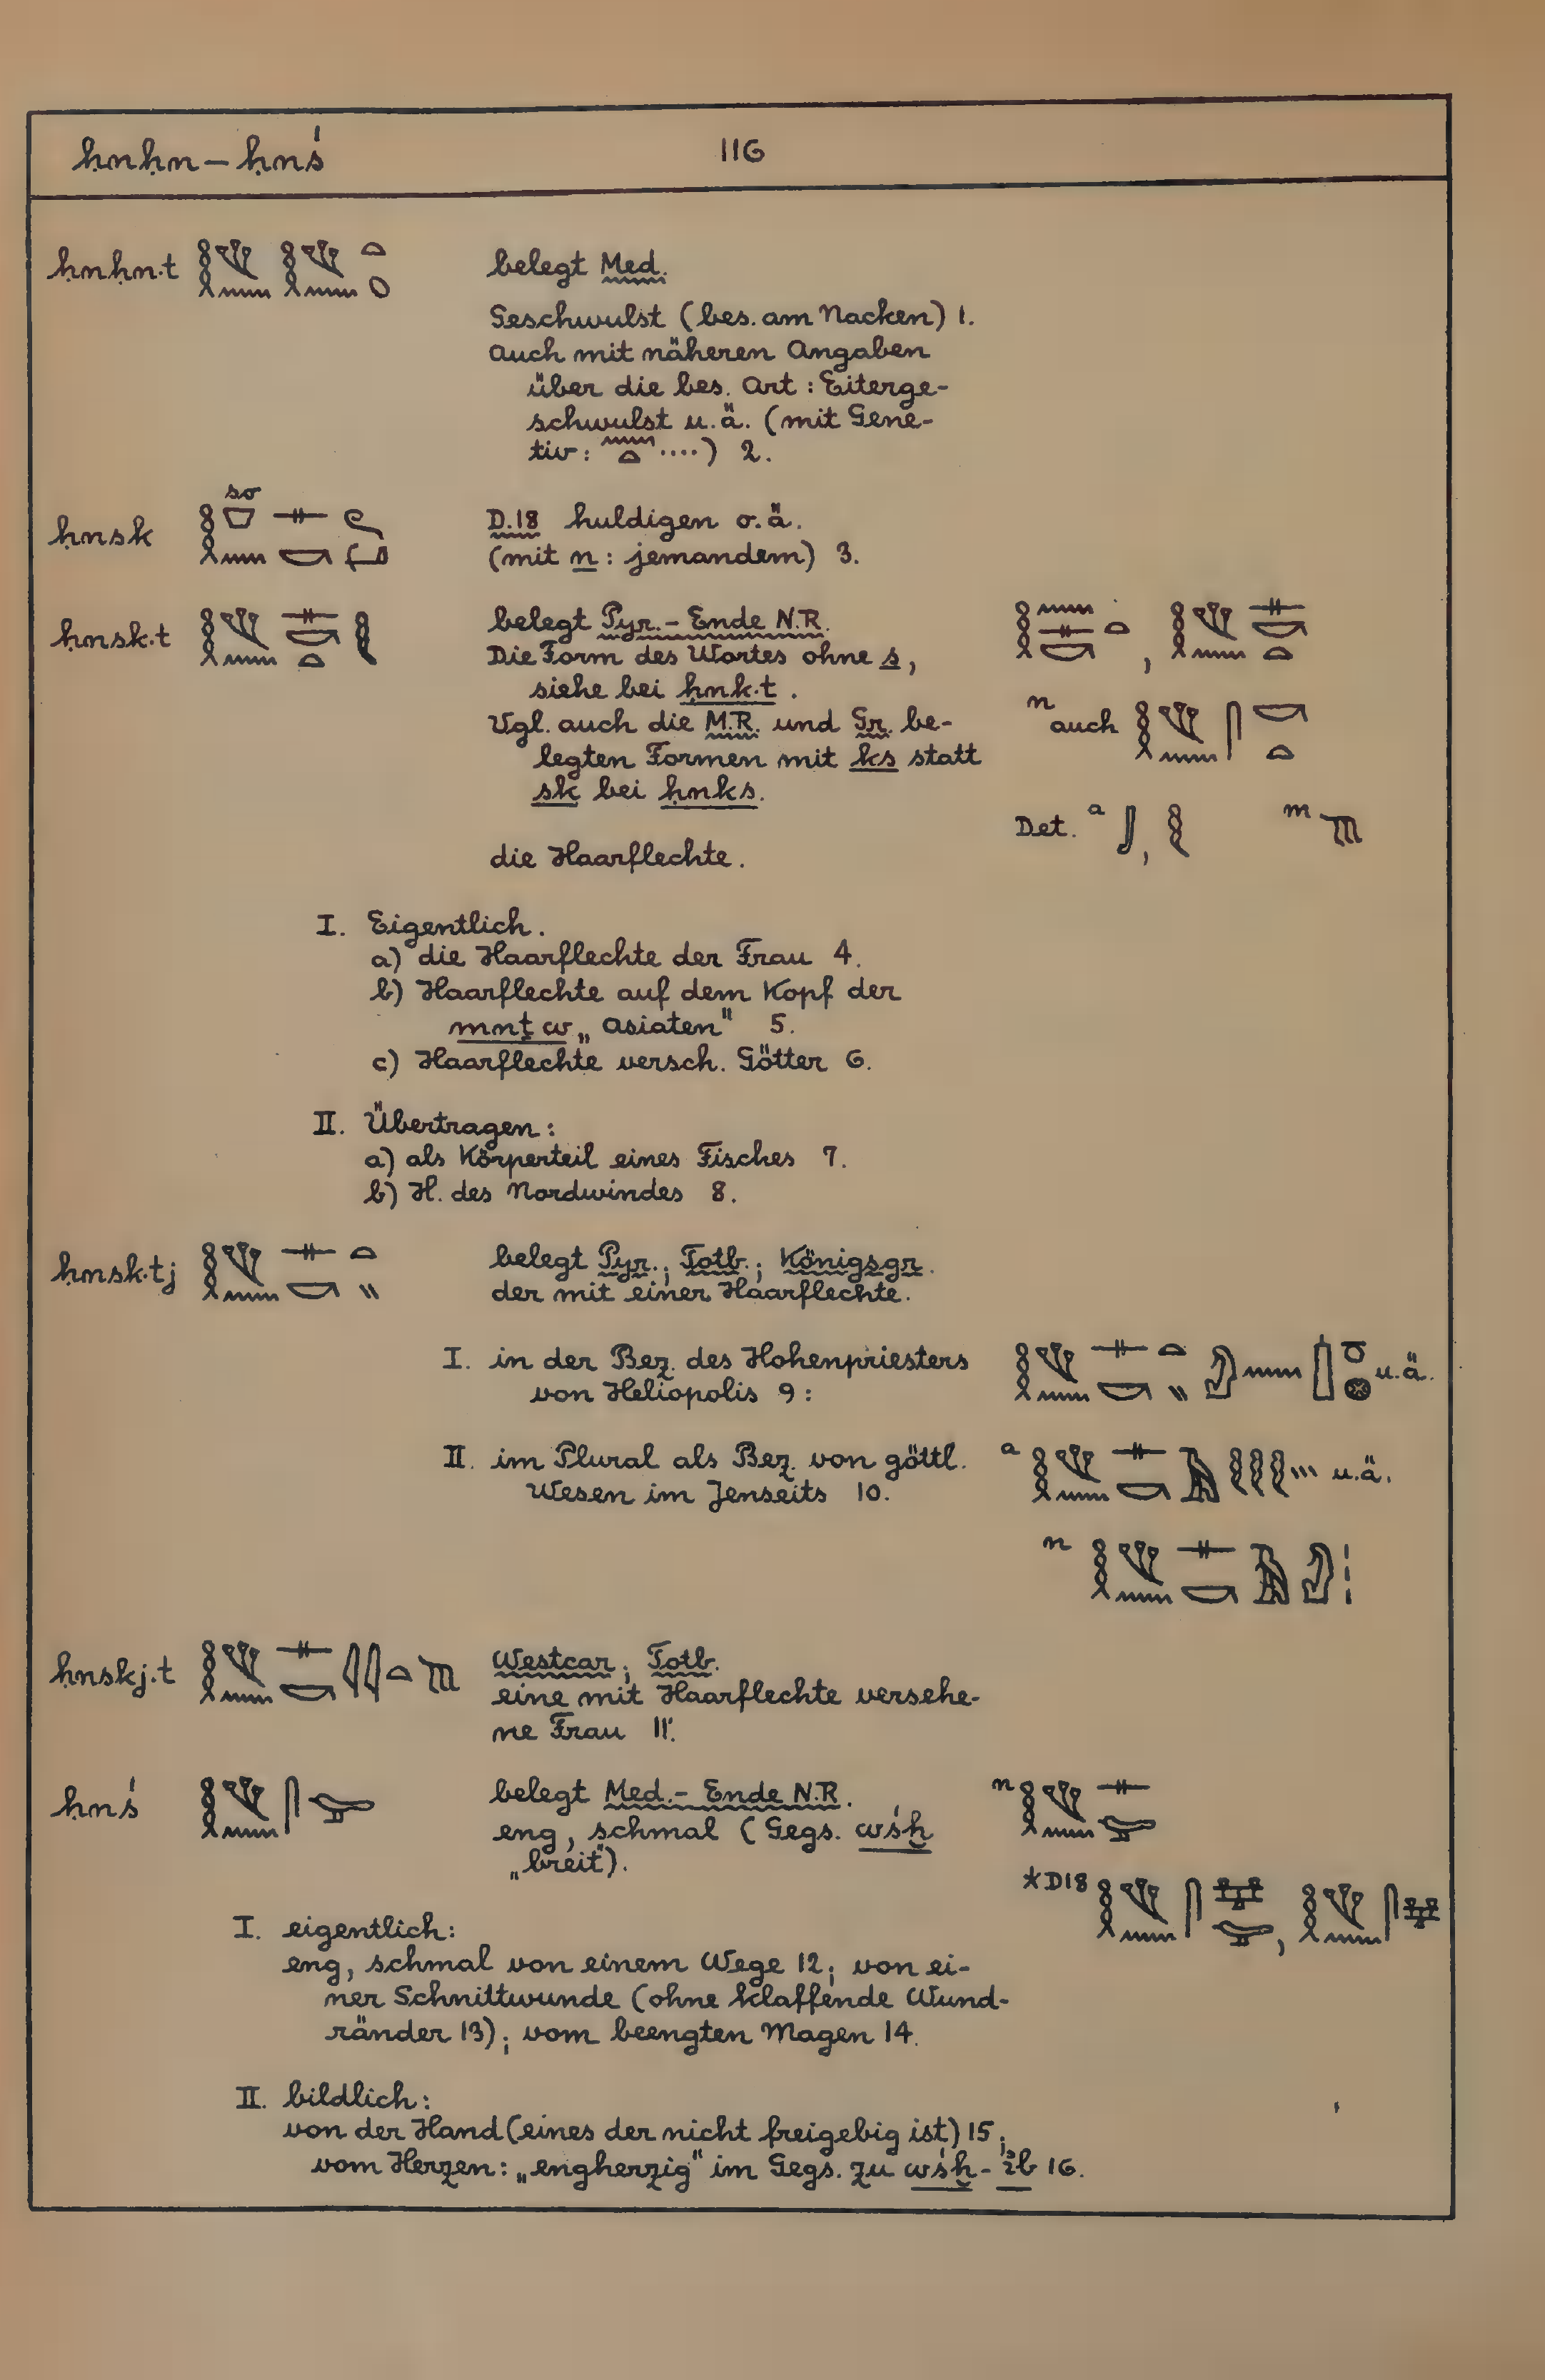 ḥnḥn – ḥnś 116
ḥnḥn.t belegt Med.
Geschwulst (bes. am Nacken) 1.
Auch mit näheren Angaben
über die bes. Art : Eiterge-
schwulst u.ä. (mit Gene-
tiv: ....) 2.
so
ḥnsk D.18 huldigen o.ä.
(mit n : jemandem) 3.
ḥnsk.t belegt Pyr. – Ende N.R.
Die Form des Wortes ohne s,
siehe bei ḥnk.t.
Vgl. auch die M.R. und Gr. be- n auch
legten Formen mit ks statt
sk bei ḥnks.
Det. a , m
die Haarflechte.
I. Eigentlich.
a) die Haarflechte der Frau 4.
b) Haarflechte auf dem Kopf der
mnṯw „Asiaten" 5.
c) Haarflechte versch. Götter 6.
II. Übertragen:
a) als Körperteil eines Fisches 7.
b) H. des Nordwindes 8.
ḥnsk.tj belegt Pyr.; Totb.; Königsgr.
der mit einer Haarflechte.
I. in der Bez. des Hohenpriesters u.ä.
von Heliopolis 9 :
II. im Plural als Bez. von göttl. a u.ä.
Wesen im Jenseits 10.
n
ḥnskj.t Westcar; Totb.
eine mit Haarflechte versehe-
ne Frau 11.
ḥnś belegt Med. – Ende N.R. n
eng, schmal (Gegs. wśḫ
„breit").
*D18
I. eigentlich:
eng, schmal von einem Wege 12; von ei-
ner Schnittwunde (ohne klaffende Wund-
ränder 13); vom beengten Magen 14.
II. bildlich:
von der Hand (eines der nicht freigebig ist) 15;
vom Herzen: „engherzig" im Gegs. zu wśḫ - ỉb 16.